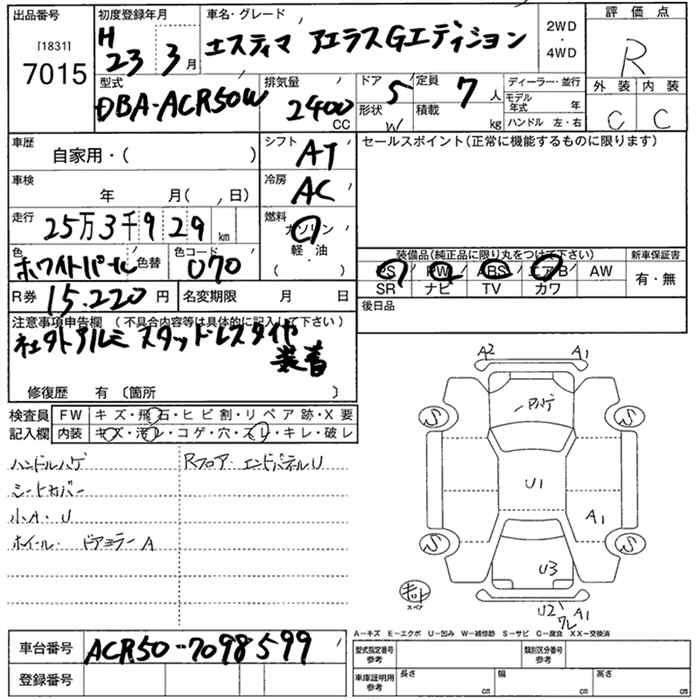 出品番号 初度登録年月 車名・グレード 2WD・4WD 評価点
[1831] 7015 H 23 3月 エスティマ アエラスGエディション R
型式 排気量 ドア 5 定員 7人 ディーラー・並行 外装 内装
DBA-ACR50W 2400 CC 形状 W 積載 kg モデル年式 年 C C
ハンドル 左・右
車歴 シフト AT セールスポイント(正常に機能するものに限ります)
自家用・( )
車検 年 月( , 日) 冷房 AC
走行 25万3千929 km 燃料 ガソリン 軽・油 ( )
色 ホワイトパール 色替 色コード 070
装備品(純正品に限り丸をつけて下さい) 新車保証書
PS PW ABS エアB AW 有・無
SR ナビ TV カワ
R券 15.220円 名変期限 月 日 後日品
注意事項申告欄 (不具合内容等は具体的に記入して下さい)
社外アルミ スタッドレスタイヤ
装着
修復歴 有 〔箇所 〕
検査員 FW キズ・飛石・ヒビ割・リペア跡・X要
記入欄 内装 キズ・汚レ・コゲ・穴・スレ・キレ・破レ
ハンドルハゲ Rフロア・エンドパネルU
シートカバー
小A・U
ホイール・ドアミラーA
A2 A1
S S
U1
A1
S S
U3
スペア
U2 A1
A-キズ E-エクボ U-凹み W-補修跡 S-サビ C-腐食 XX-交換済
車台番号 ACR50-7098599 型式指定番号 参考 類別区分番号 参考
登録番号 車庫証明用 参考 長さ cm 幅 cm 高さ cm